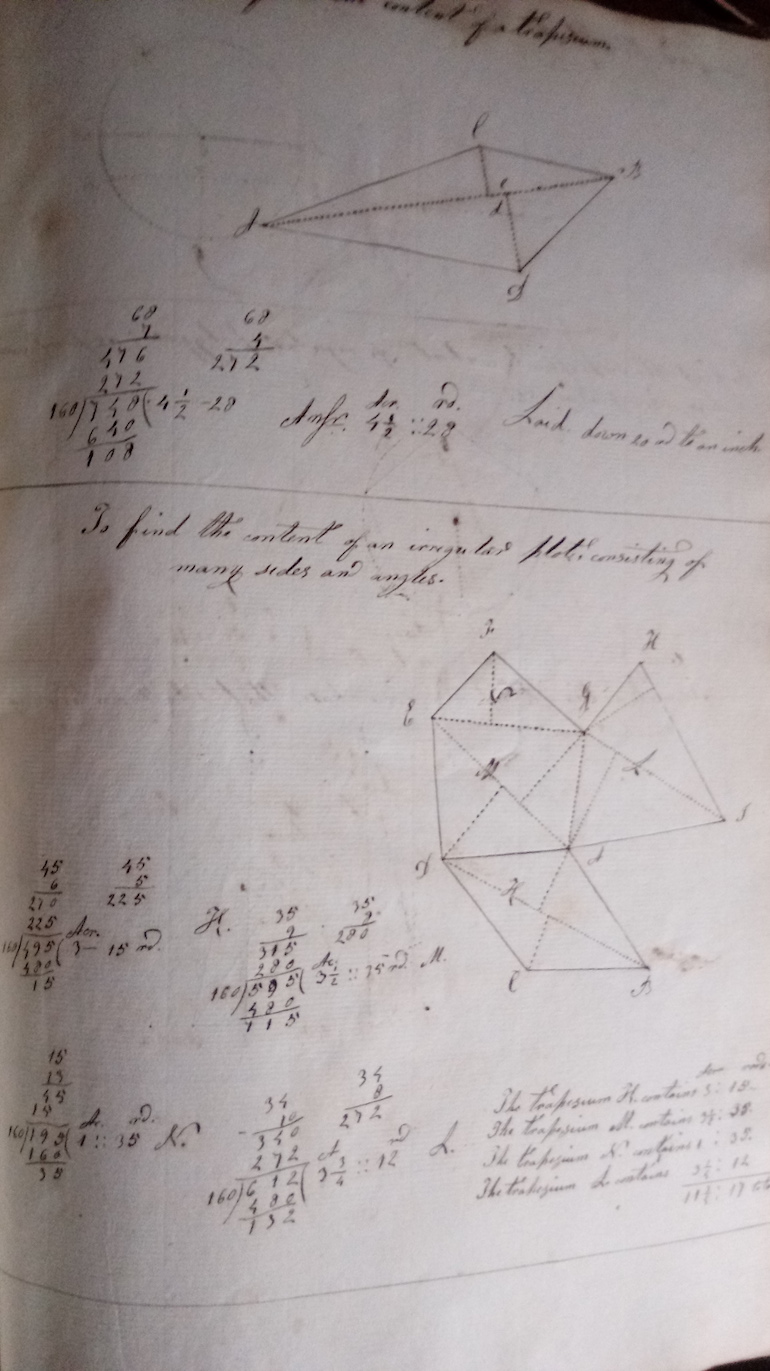 content of a trapesium.
C
B
A
D
68
7
476
272
160)748(4 1/2 - 28
640
108
68
4
272
Ac. rd.
Ansr. 4 1/2 :: 28
Laid down 20 rd to an inch
To find the content of an irregular plot consisting of
many sides and angles.
F
H
E
G
N
M
L
I
D
A
K
C
B
45
6
270
225
160)495(3 — 15 rd.
480
15
Acr.
45
5
225
K.
35
9
315
280
160)595(3 1/2 :: 35 rd. M.
480
115
Ac.
35
280
15
13
45
15
160)195(1 :: 35 N.
160
35
Ac. rd.
34
10
340
272
160)612(3 3/4 :: 12 L.
480
132
A rd
34
8
272
The trapesium K. contains 3 : 15.
The trapesium M. contains 3 1/2 : 35.
The trapesium N. contains 1 : 35.
The trapesium L contains : 12